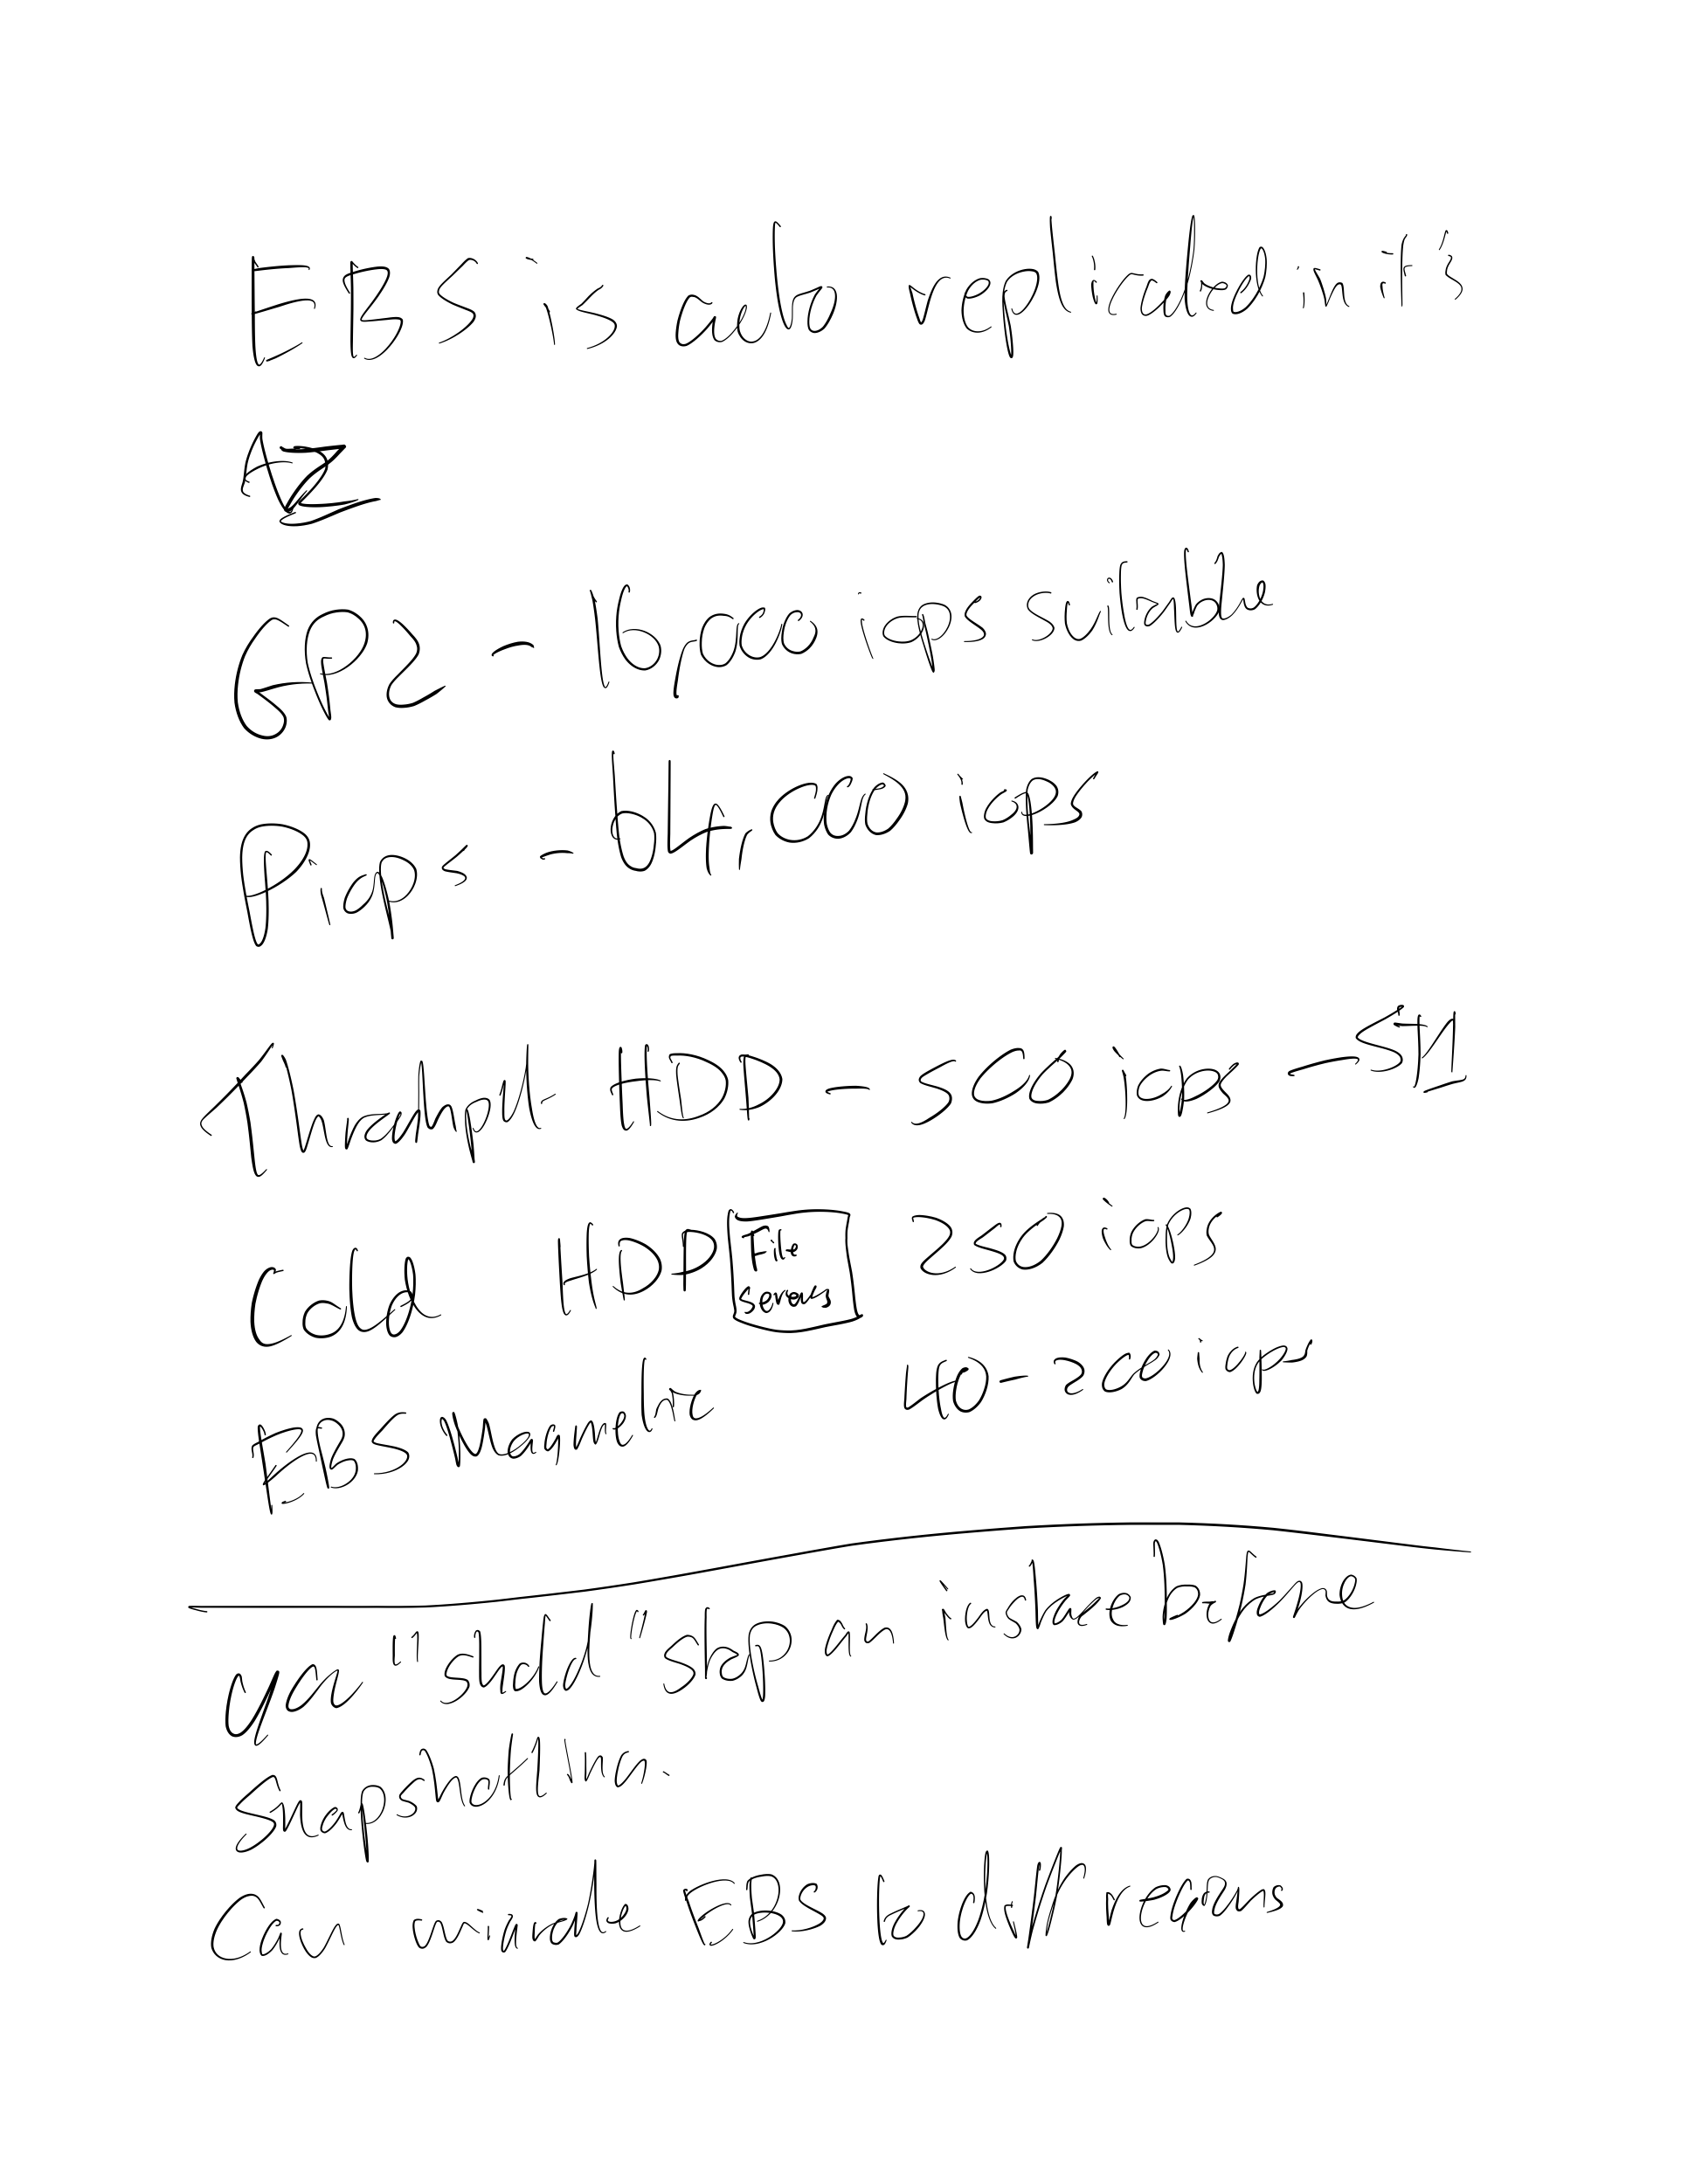 EBS is auto replicated in it's
AZ
GP2 - 16,000 iops suitable
Piops - 64,000 iops
Thruput HDD - 500 iops - ST1
Cold HDD File servers 250 iops
EBS Magnetic 40-200 iops
you "should" stop an instance before
snapshotting.
Can migrate EBS to diff regions